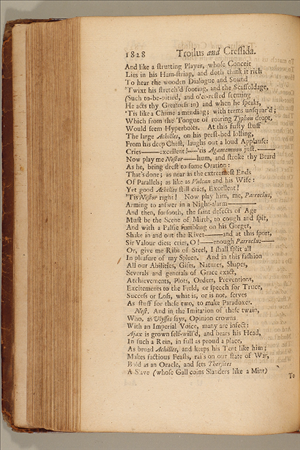 1828 Troilus and Cressida.
And like a strutting Player, whose Conceit
Lies in his Ham-string, and doth think it rich
To hear the wooden Dialogue and Sound
'Twixt his stretch'd footing, and the Scaffoldage,
Such to-be-pitied, and o'er-rested seeming
He acts thy Greatness in: and when he speaks,
'Tis like a Chime a mending; with terms unsquar'd;
Which from the Tongue of roaring Typhon dropt,
Would seem Hyperboles. At this fusty stuff
The large Achilles, on his prest-bed lolling,
From his deep Chest, laughs out a loud Applause:
Cries excellent! 'tis Agamemnon just
Now play me Nestor hum, and stroke thy Beard
As he, being drest to some Oration:
That's done; as near as the extremest Ends
Of Parallels; as like as Vulcan and his Wife:
Yet good Achilles still cries, Excellent!
'Tis Nestor right! Now play him, me, Patroclus,
Arming to answer in a Night-Alarm
And then, forsooth, the faint defects of Age
Must be the Scene of Mirth, to cough and spit,
And with a Palsie fumbling on his Gorget,
Shake in and out the Rivet and at this sport,
Sir Valour dies; cries, O! enough Patroclus
Or, give me Ribs of Steel, I shall split all
In pleasure of my Spleen. And in this fashion
All our Abilities, Gifts, Natures, Shapes,
Severals and generals of Grace exact,
Atchievements, Plots, Orders, Preventions,
Excitements to the Field, or speech for Truce,
Success or Loss, what is, or is not, serves
As stuff for these two, to make Paradoxes.
Nest. And in the Imitation of these twain,
Who, as Ulysses says, Opinion crowns
With an Imperial Voice, many are infect:
Ajax is grown self-will'd, and bears his Head,
In such a Rein, in full as proud a place,
As broad Achilles, and keeps his Tent like him;
Makes factious Feasts, rails on our state of War,
Bold as an Oracle, and sets Thersites
A Slave (whose Gall coins Slanders like a Mint)
To